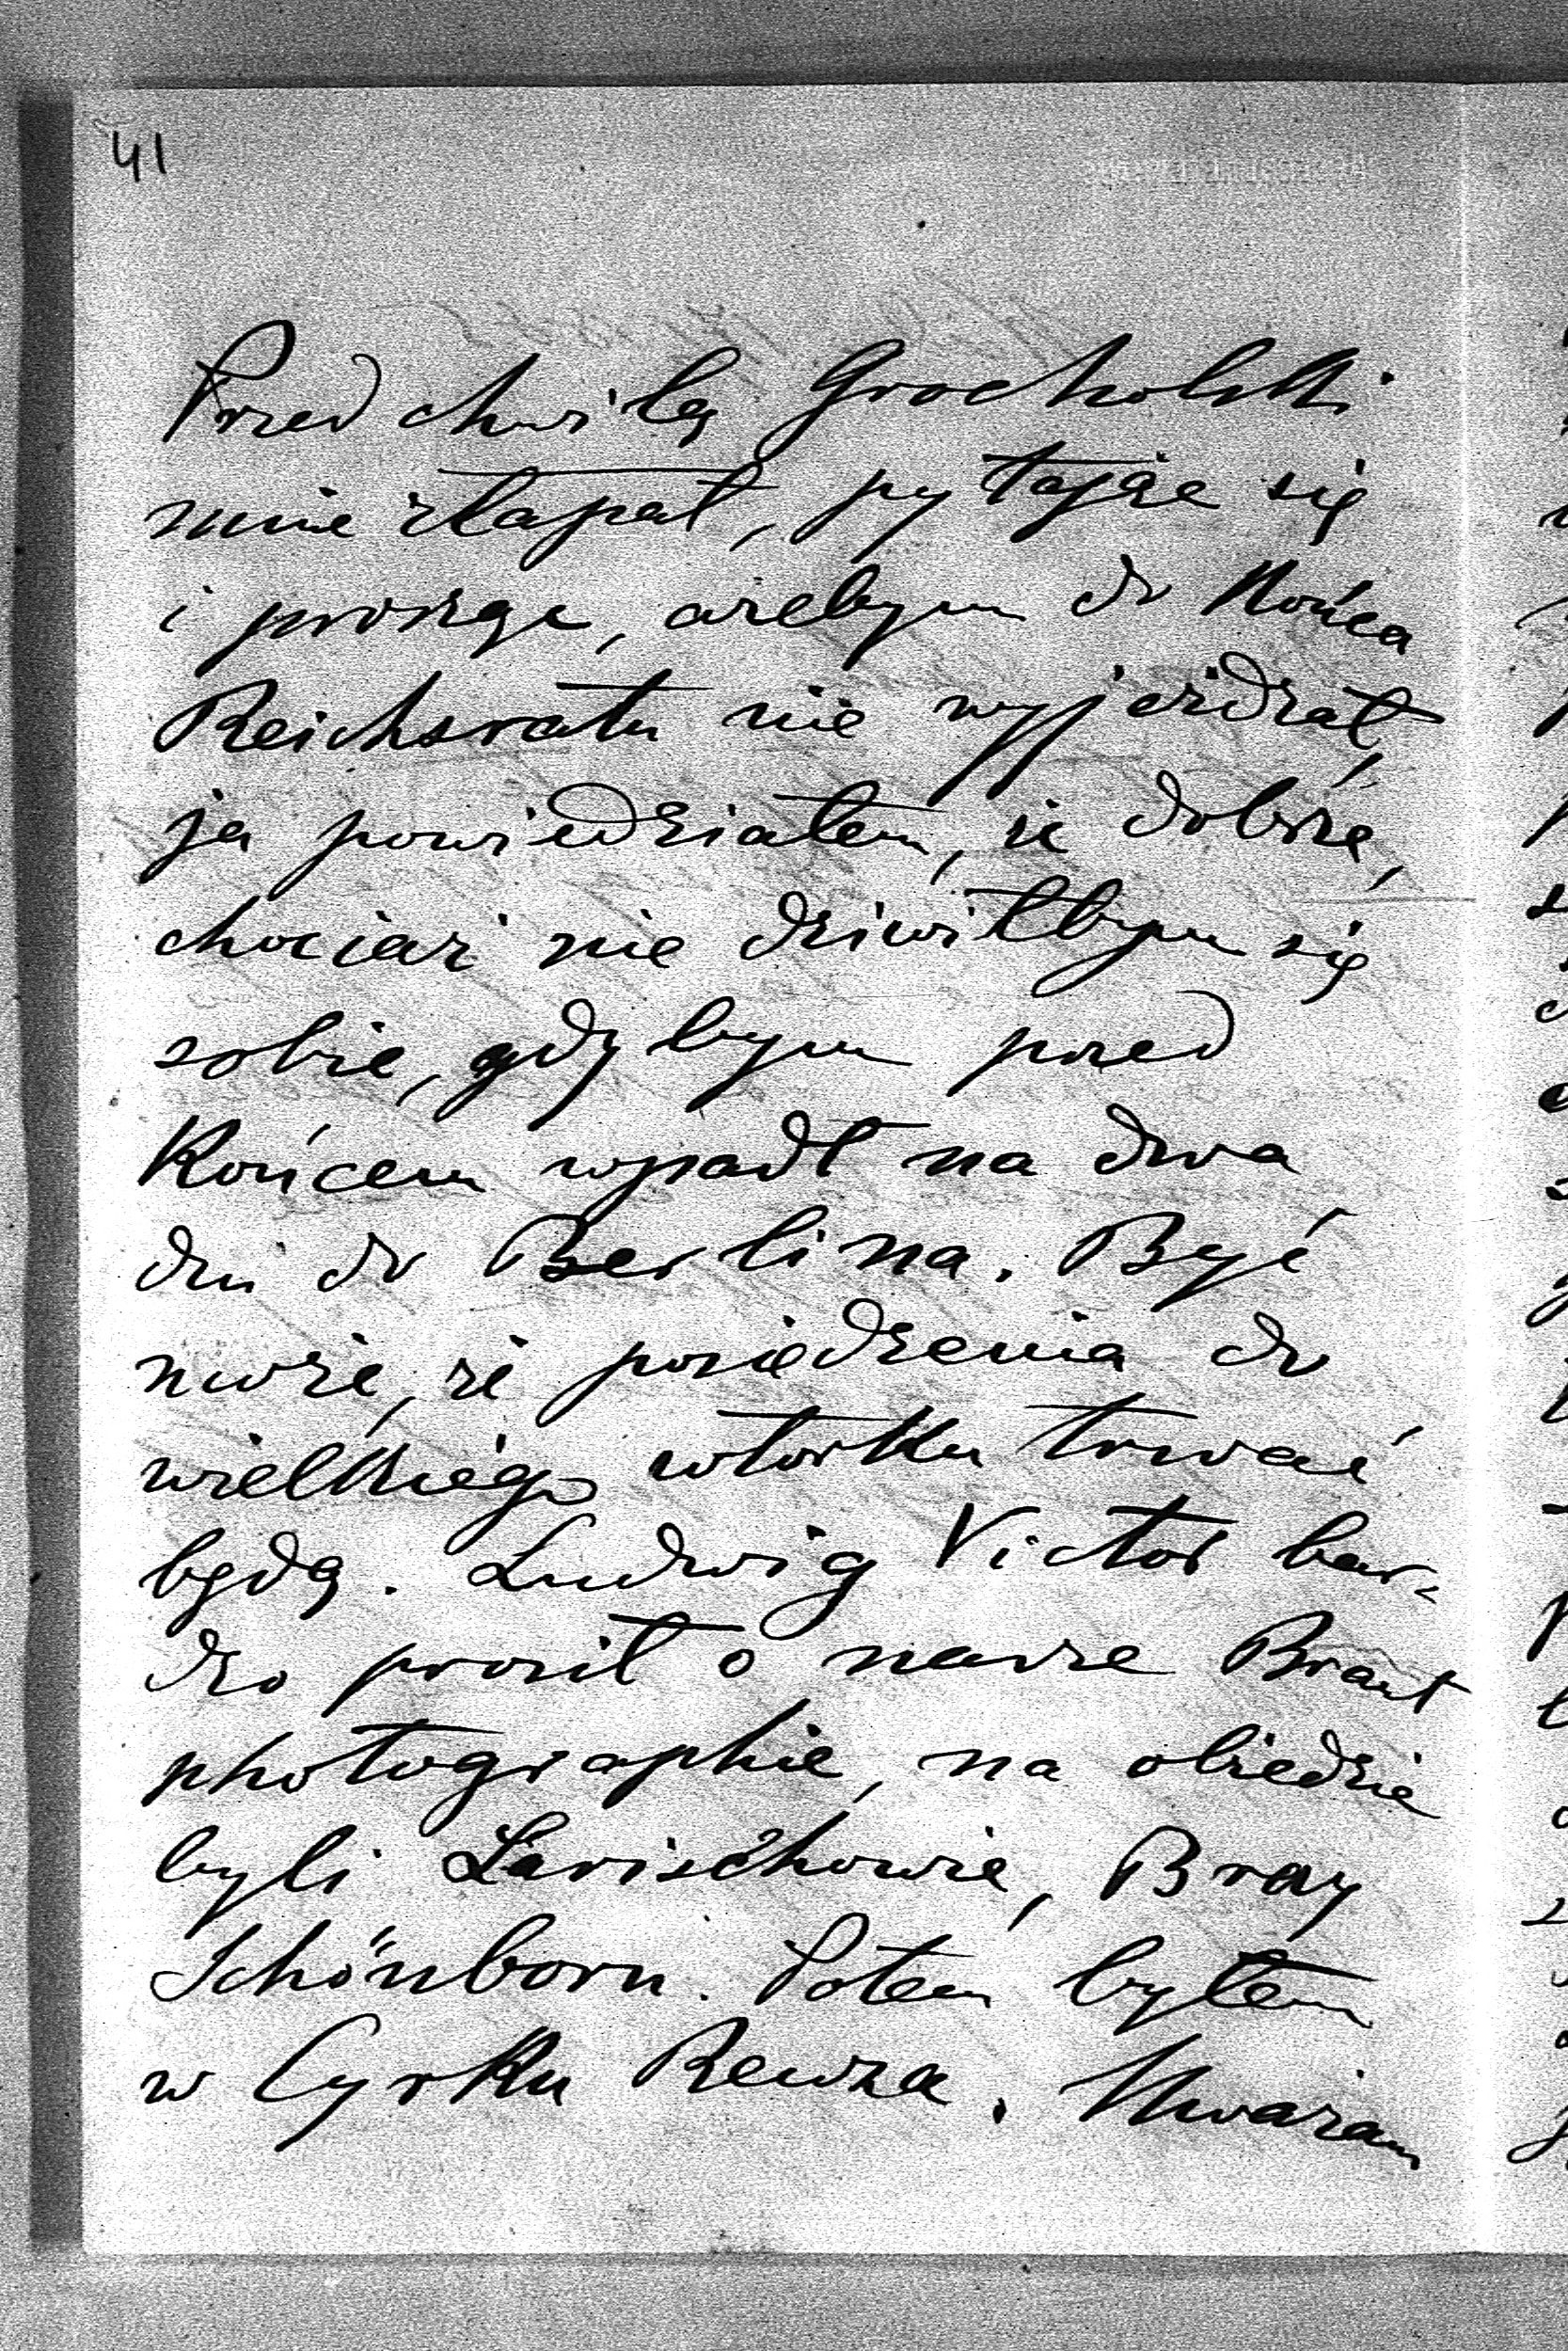 41
Przed chwilą Grocholski
mnie złapał, pytając się
i prosząc, ażebym do Końca
Reichsratu nie wyjeżdżał,
ja powiedziałem, że dobrze,
chociaż nie dziwiłbym się
sobie, gdybym przed
Końcem wpadł na dwa
dni do Berlina. Być
może, że posiedzenia do
wielkiego wtorku trwać
będą. Ludwig Victor bar-
dzo prosił o nasze Braut
photographie, na obiedzie
byli Larischowie, Bray
Schönborn. Potem byłem
w Cyrku Renza. Uważam